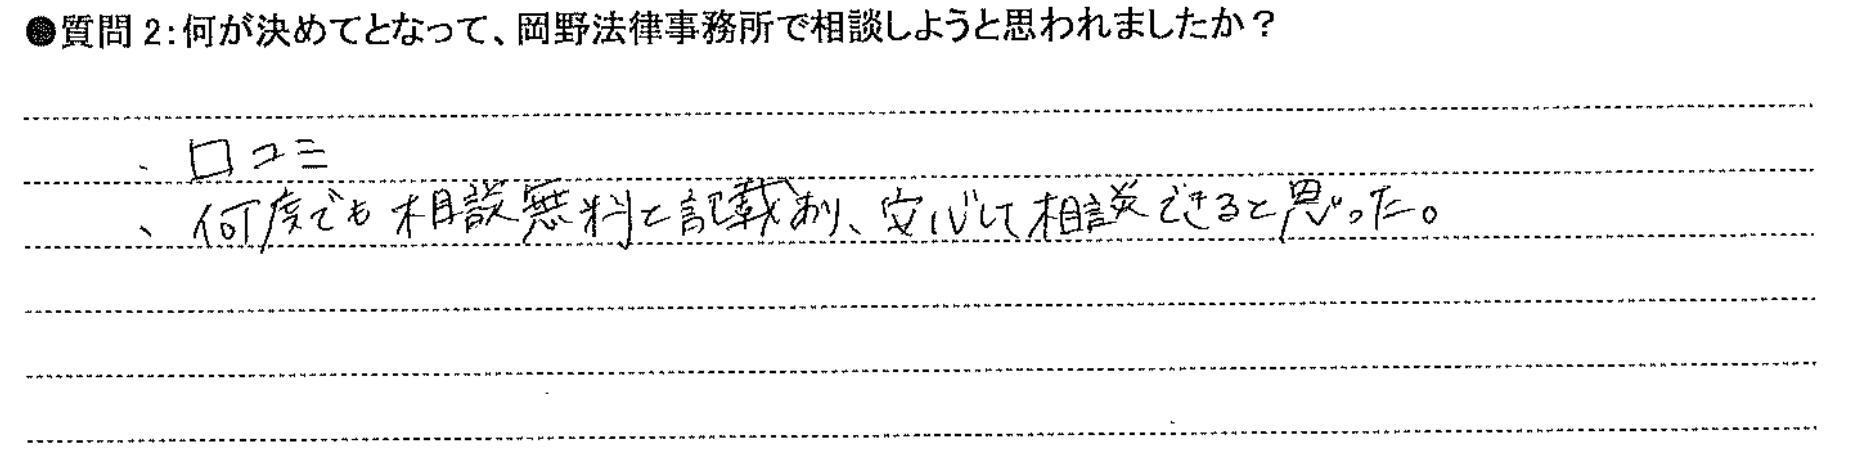 ●質問 2:何が決めてとなって、岡野法律事務所で相談しようと思われましたか？
、口コミ
、何度でも相談無料と記載あり、安心して相談できると思った。